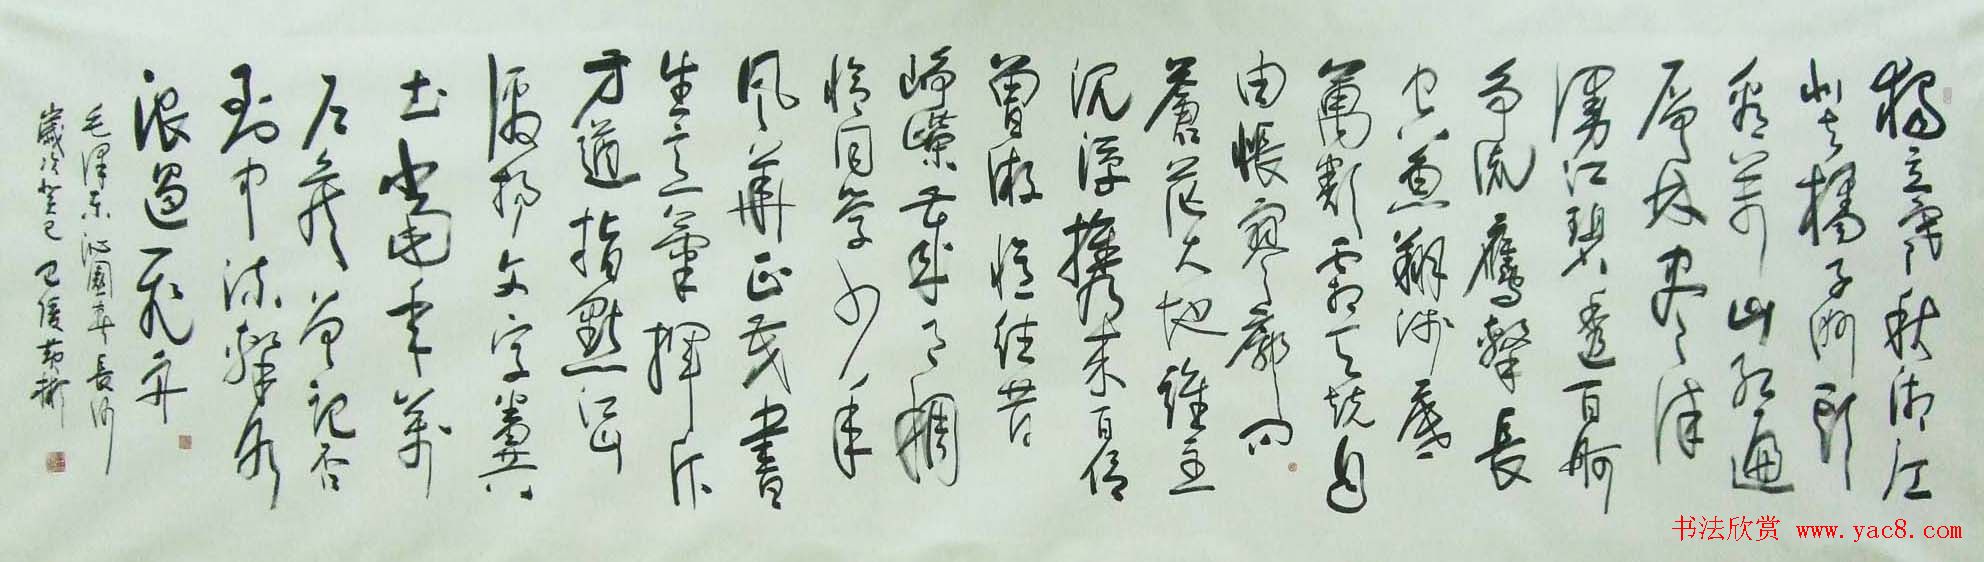 獨立寒秋湘江
北去橘子洲頭
看萬山紅遍
層林盡染
漫江碧透百舸
爭流鷹擊長
空魚翔淺底
萬類霜天競自
由悵寥廓問
蒼茫大地誰主
沉浮攜來百侣
曾游憶往昔
崢嶸歲月稠
恰同學少年
風華正茂書
生意氣揮斥
方遒指點江山
激揚文字糞
土當年萬
户侯曾記否
到中流擊水
浪遏飛舟
毛澤東沁園春長沙
歲次癸巳
书法欣赏 www.yac8.com